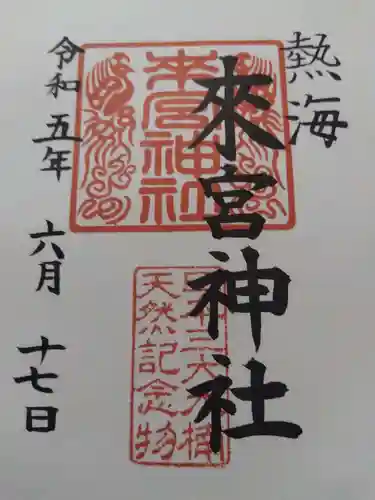 熱海
來宮神社
令和五年 六月 十七日
来宮神社
日本三大大楠
天然記念物